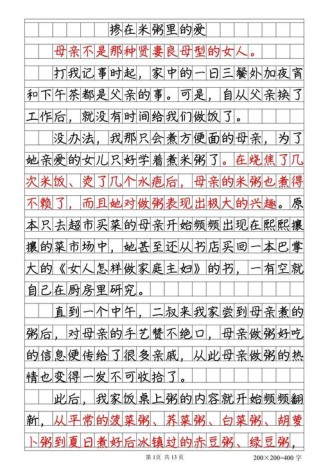 掺在米粥里的爱
母亲不是那种贤妻良母型的女人。
打我记事时起，家中的一日三餐外加夜宵
和下午茶都是父亲的事。可是，自从父亲换了
工作后，就没有时间给我们做饭了。
没办法，我那只会煮方便面的母亲，为了
她亲爱的女儿只好学着煮米粥了。在烧焦了几
次米饭、烫了几个水疱后，母亲的米粥也煮得
不赖了，而且她对做粥表现出极大的兴趣。原
本只去超市买菜的母亲开始频频出现在熙熙攘
攘的菜市场中，她甚至还从书店买回一本巴掌
大的《女人怎样做家庭主妇》的书，一有空就
自己在厨房里研究。
直到一个中午，二叔来我家尝到母亲煮的
粥后，对母亲的手艺赞不绝口，母亲做粥好吃
的信息便传给了很多亲戚，从此母亲做粥的热
情也变得一发不可收拾了。
此后，我家饭桌上粥的内容就开始频频翻
新，从平常的菠菜粥、荠菜粥、白菜粥、胡萝
卜粥到夏日煮好后冰镇过的赤豆粥、绿豆粥，
第1页 共13页
200×200=400字